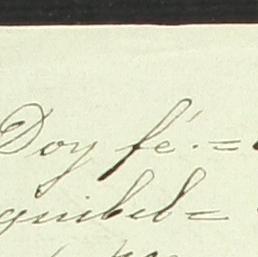 Doy fé.=
quibel=